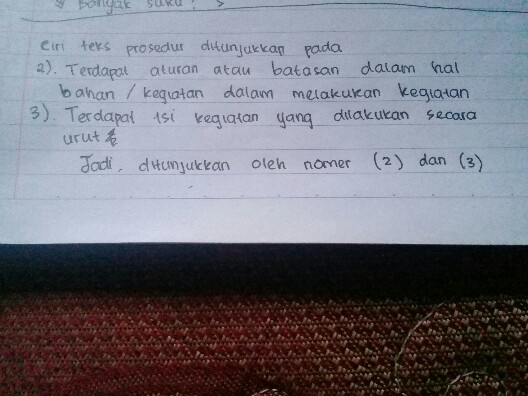 Banyak suku : 5
Ciri teks prosedur ditunjukkan pada
2). Terdapat aturan atau batasan dalam hal
bahan / kegiatan dalam melakukan kegiatan
3). Terdapat isi kegiatan yang dilakukan secara
urut
Jadi, ditunjukkan oleh nomer (2) dan (3)